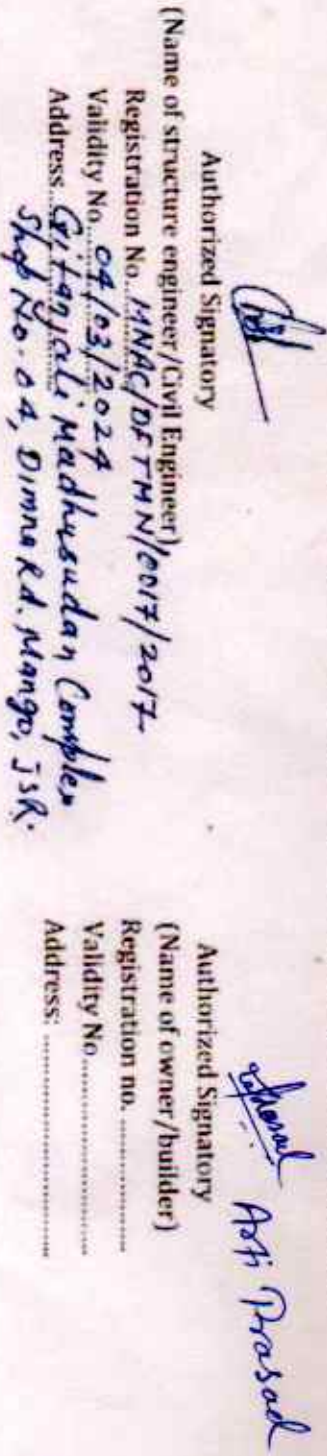 Authorized Signatory
(Name of structure engineer/Civil Engineer)
Registration No. MNAC/DFTMN/0017/2017
Validity No. 04/03/2024
Address Gitanjali Madhusudan Complex
Shop No. 04, Dimna Rd. Mango, JSR.
Arti Prasad
Authorized Signatory
(Name of owner/builder)
Registration no. ........................
Validity No..............................
Address: ..............................